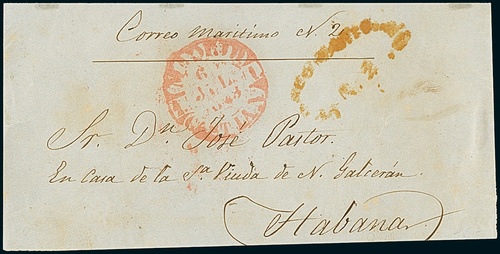 Correo Maritimo N. 2
6
JUL
Sr. Dn. José Pastor.
En casa de la Sa. Viuda de N. Galcerán.
Habana